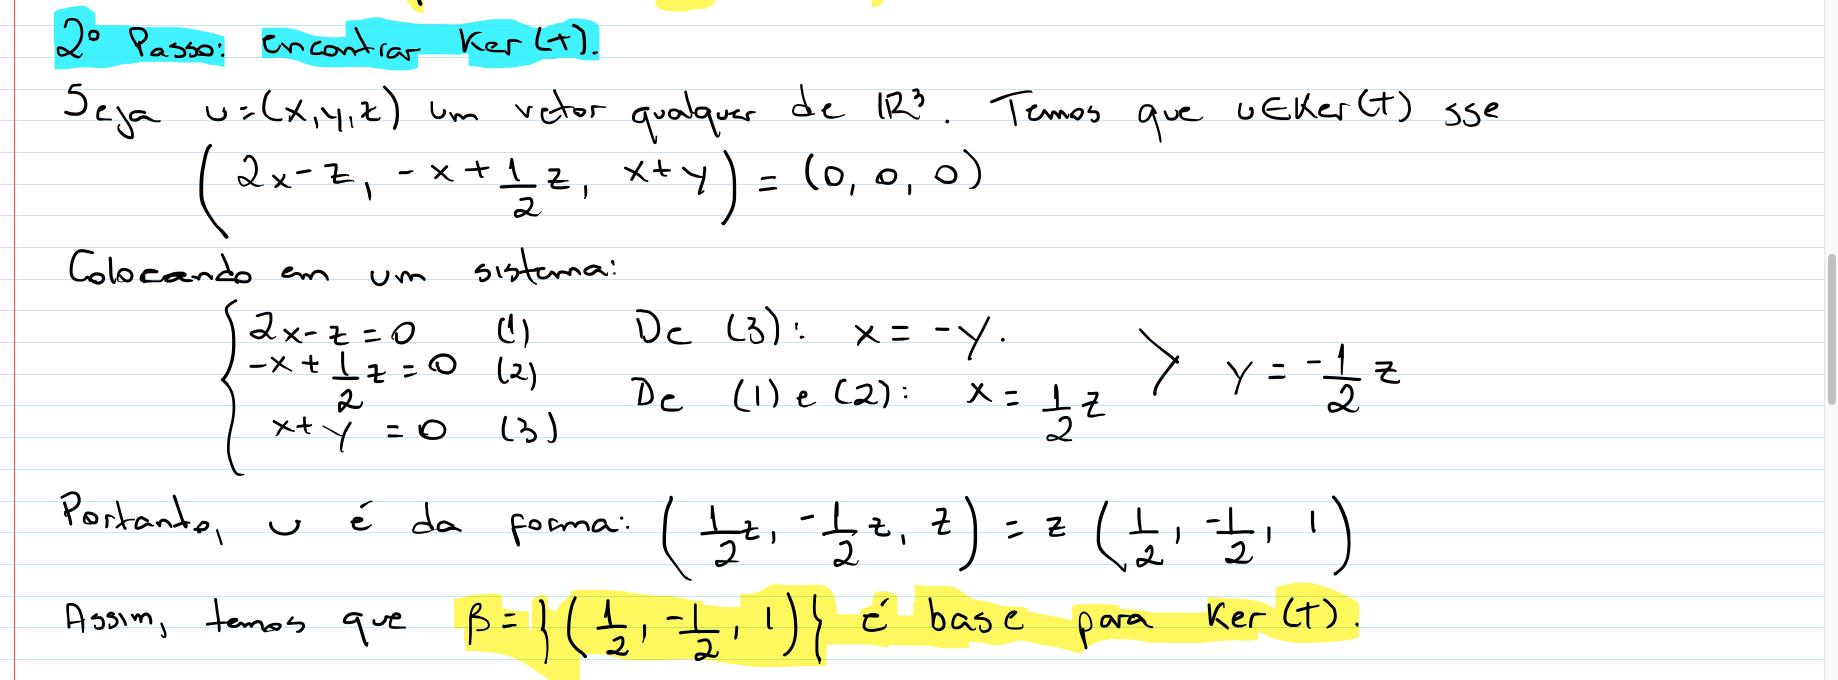 2º Passo: encontrar Ker(T).
Seja u=(x,y,z) um vetor qualquer de IR³. Temos que u∈Ker(T) sse
(2x-z, -x+1/2z, x+y) = (0,0,0)
Colocando em um sistema:
{2x-z=0 (1) De (3): x=-y.
-x+1/2z=0 (2) De (1) e (2): x=1/2z > y=-1/2z
x+y=0 (3)
Portanto, u é da forma: (1/2z, -1/2z, z) = z(1/2, -1/2, 1)
Assim, temos que β={(1/2, -1/2, 1)} é base para Ker(T).